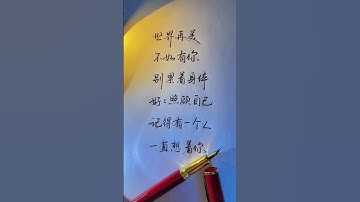 世界再美
不如有你
别累着身体
好:照顾自己
记得有一个人
一直想着你